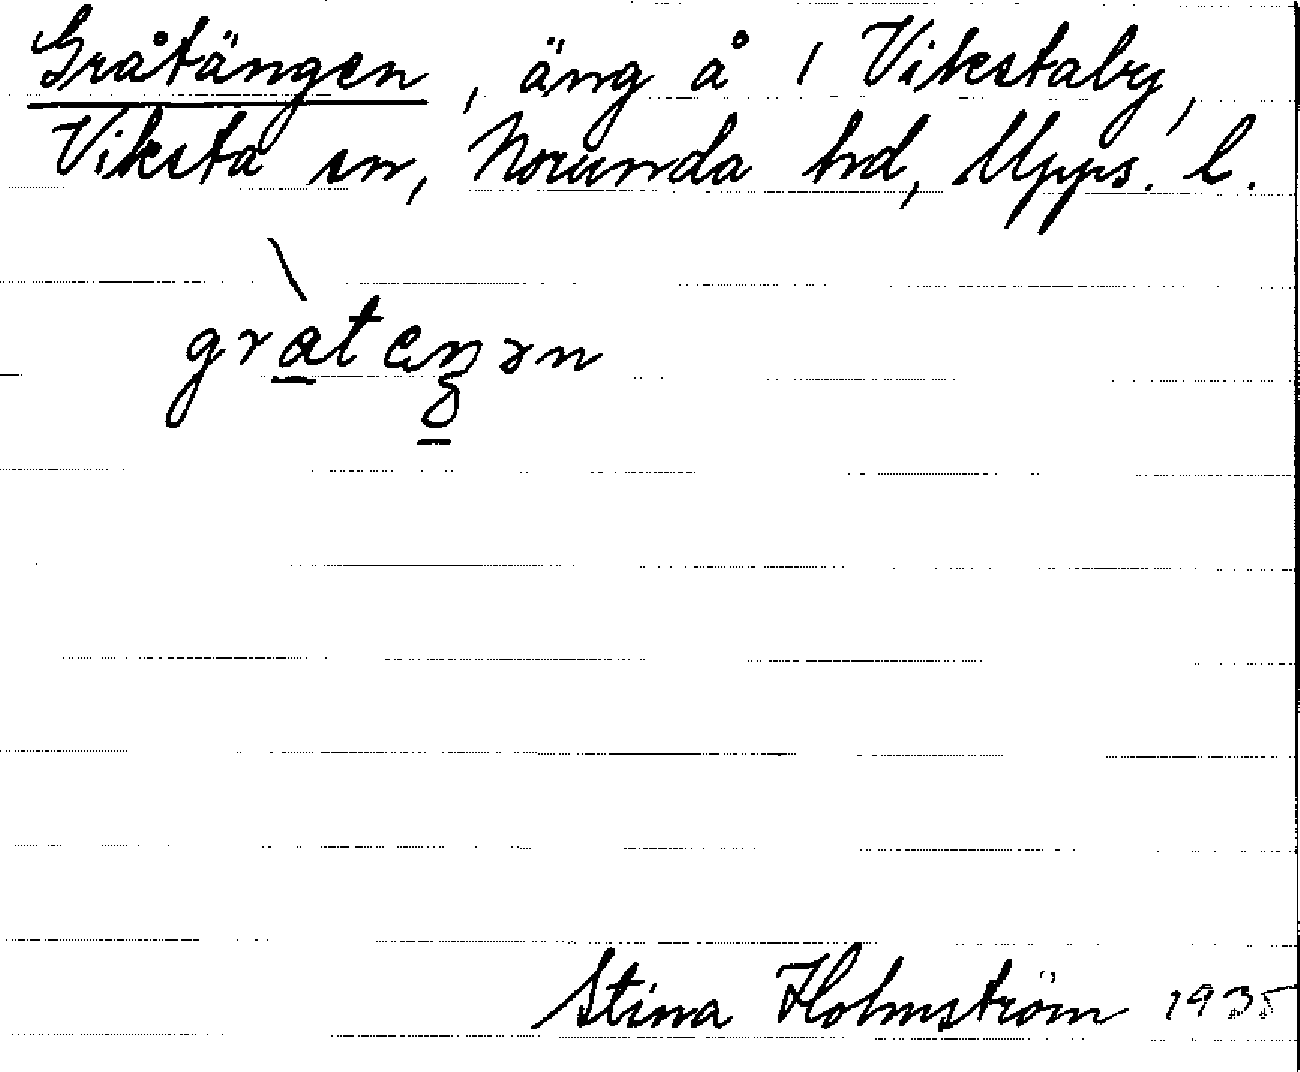 Gråtängen, äng å 1 Vikstaby,
Viksta sn, Norunda hd, Upps. l.
Stina Holmström 1935